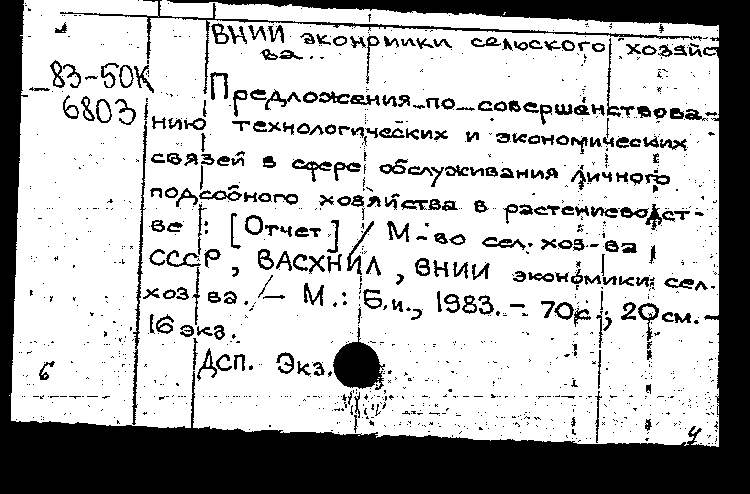 ВНИИ экономики сельского хозяйст
ва...
83-50К
6803
Предложения по совершенствова-
нию технологических и экономических
связей в сфере обслуживания личного
подсобного хозяйства в растениеводст-
ве : [Отчет] / М-во сел. хоз-ва
СССР, ВАСХНИЛ, ВНИИ экономики сел.
хоз-ва. — М.: Б.и., 1983. - 70с.; 20см. -
16 экз.
ДСП. Экз.
б
ч